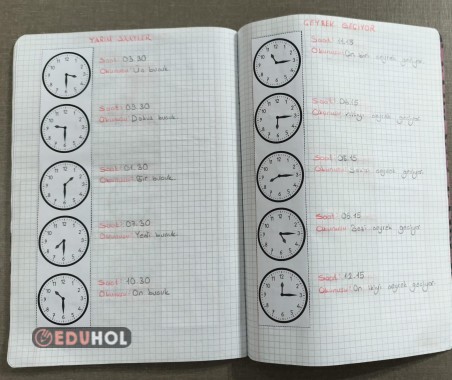 YARIM SAATLER
Saat: 03.30
Okunuşu: Üç buçuk.
Saat: 09.30
Okunuşu: Dokuz buçuk.
Saat: 01.30
Okunuşu: Bir buçuk.
Saat: 07.30
Okunuşu: Yedi buçuk.
Saat: 10.30
Okunuşu: On buçuk.
EDUHOL
ÇEYREK GEÇİYOR
Saat: 11.15
Okunuşu: On biri çeyrek geçiyor.
Saat:
Okunuşu: çeyrek geçiyor.
Saat:
Okunuşu: çeyrek geçiyor.
Saat:
Okunuşu: Beşi çeyrek geçiyor.
Saat: 12.15
Okunuşu: On ikiyi çeyrek geçiyor.